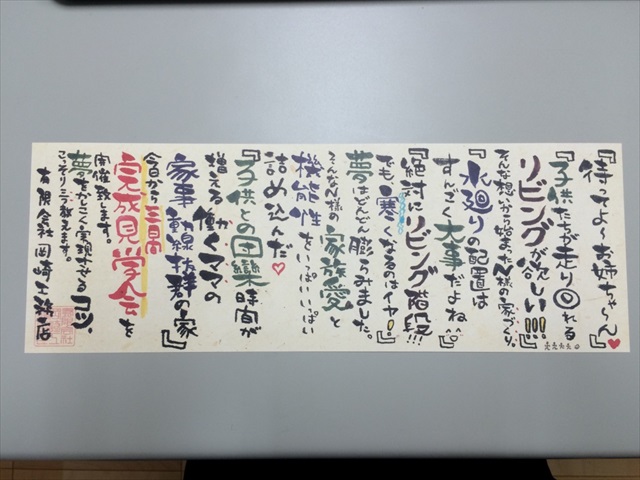 『待ってよ〜お姉ちゃん』
『子供たちが走り回れる
リビングが欲しい!!!』
そんな想いから始まったN様の家づくり。
『水廻りの配置は
すんごく大事だよね』
『絶対にリビング階段!!!
でも寒くなるのはイヤ!』
夢はどんどん膨らみました。
そんなN様の家族愛と
機能性をいっぱいいっぱい
詰め込んだ
『子供との団欒時間が
増える働くママの
家事動線抜群の家』
今日から三日間
完成見学会を
開催致します。
夢をかしこく実現させるコツ、
こっそりコソ教えます。
有限会社岡崎工務店